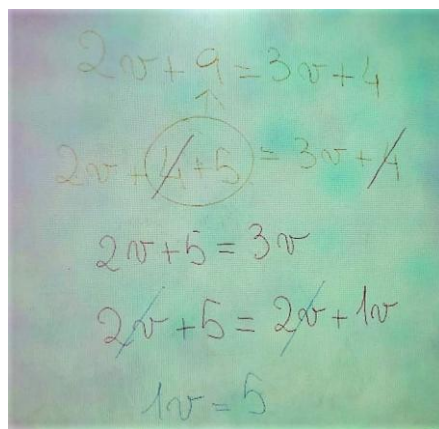 2v+9=3v+4
2v+4+5=3v+4
2v+5=3v
2v+5=2v+1v
1v=5